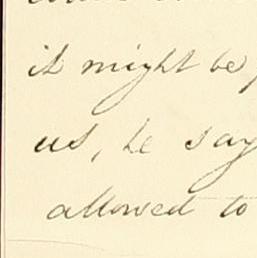 it might be,
us, he say
allowed to